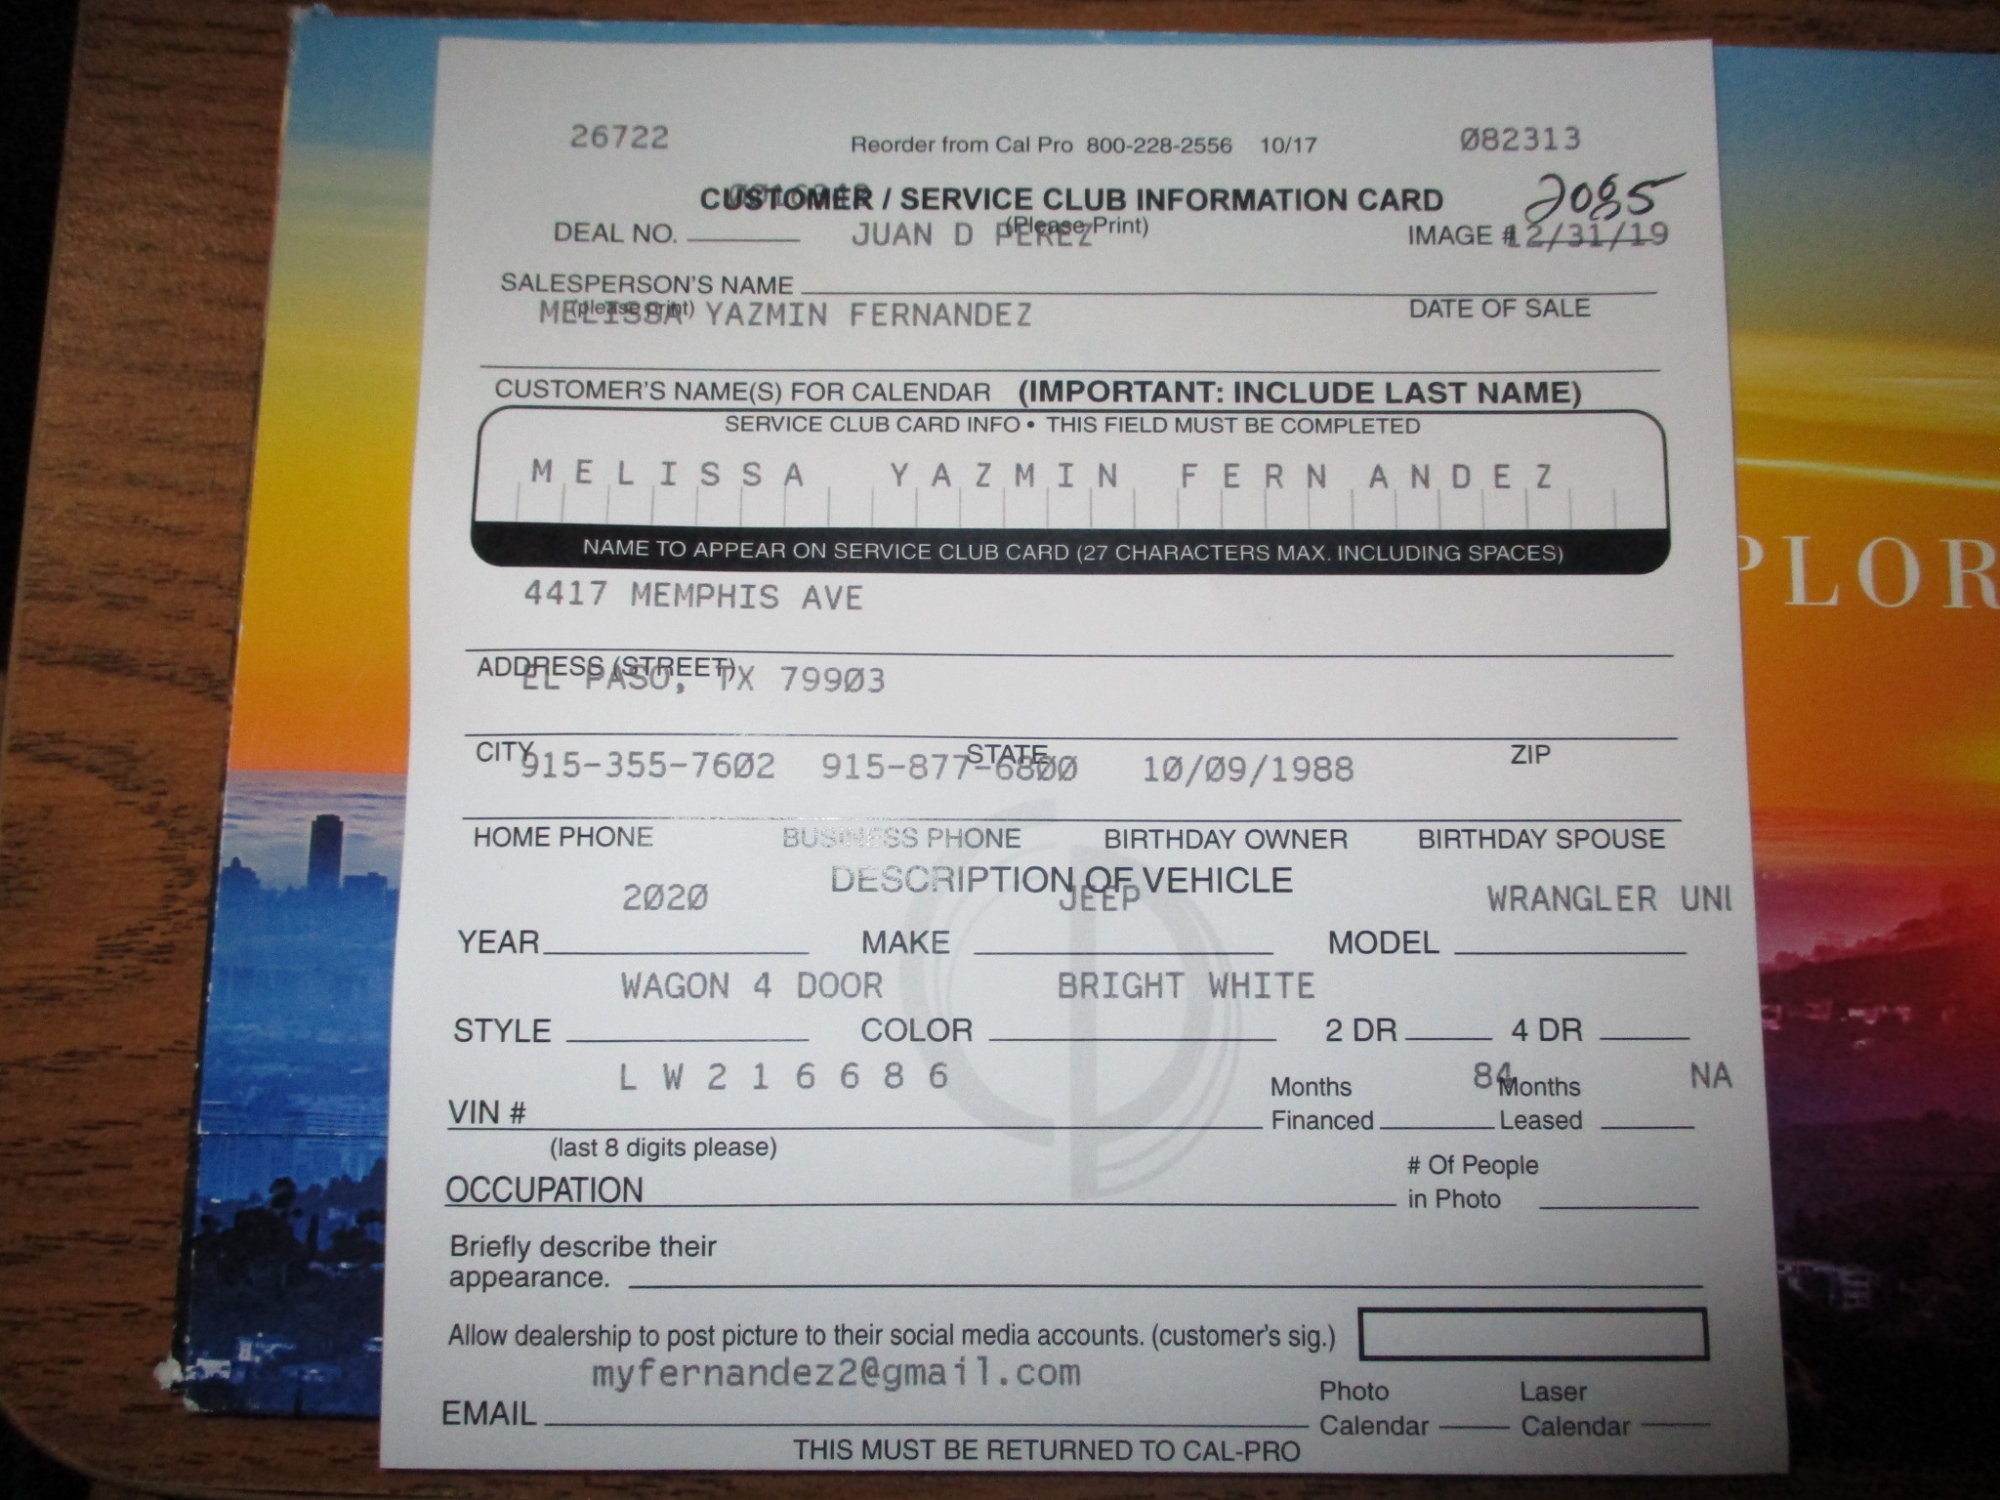 26722 Reorder from Cal Pro 800-228-2556 10/17 082313
CUSTOMER / SERVICE CLUB INFORMATION CARD 2085
(Please Print)
DEAL NO. JUAN D PEREZ IMAGE # 12/31/19
SALESPERSON'S NAME
(please print) DATE OF SALE
MELISSA YAZMIN FERNANDEZ
CUSTOMER'S NAME(S) FOR CALENDAR (IMPORTANT: INCLUDE LAST NAME)
SERVICE CLUB CARD INFO • THIS FIELD MUST BE COMPLETED
MELISSA YAZMIN FERNANDEZ
NAME TO APPEAR ON SERVICE CLUB CARD (27 CHARACTERS MAX. INCLUDING SPACES)
PLOR
4417 MEMPHIS AVE
ADDRESS (STREET)
EL PASO, TX 79903
CITY STATE ZIP
915-355-7602 915-877-6800 10/09/1988
HOME PHONE BUSINESS PHONE BIRTHDAY OWNER BIRTHDAY SPOUSE
DESCRIPTION OF VEHICLE
2020 JEEP WRANGLER UNL
YEAR MAKE MODEL
WAGON 4 DOOR BRIGHT WHITE
STYLE COLOR 2 DR 4 DR
LW216686 84 NA
VIN # Months Financed Months Leased
(last 8 digits please)
OCCUPATION # Of People in Photo
Briefly describe their
appearance.
Allow dealership to post picture to their social media accounts. (customer's sig.)
myfernandez2@gmail.com
EMAIL Photo Calendar Laser Calendar
THIS MUST BE RETURNED TO CAL-PRO